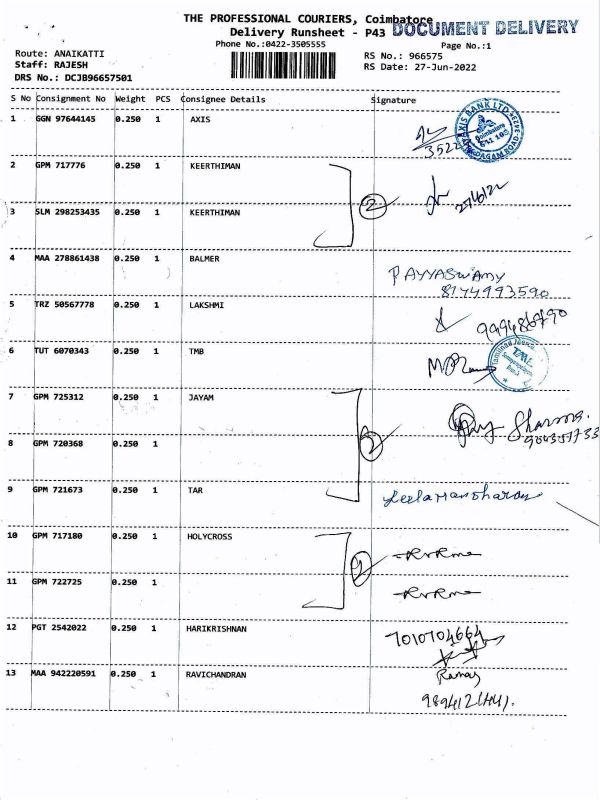 THE PROFESSIONAL COURIERS, Coimbatore
Delivery Runsheet - P43 DOCUMENT DELIVERY
Phone No.:0422-3505555 Page No.:1
Route: ANAIKATTI RS No.: 966575
Staff: RAJESH RS Date: 27-Jun-2022
DRS No.: DCJB96657501
S No Consignment No Weight PCS Consignee Details Signature
1 GGN 97644145 0.250 1 AXIS
AXIS BANK LTD
Coimbatore
3522
2 GPM 717776 0.250 1 KEERTHIMAN
2 27/6/22
3 SLM 298253435 0.250 1 KEERTHIMAN
4 MAA 278861438 0.250 1 BALMER
PAYYASWAMY
8144993590
5 TRZ 50567778 0.250 1 LAKSHMI
6 TUT 6070343 0.250 1 TMB
TMB
7 GPM 725312 0.250 1 JAYAM
Sharma.
8 GPM 720368 0.250 1
2
9 GPM 721673 0.250 1 TAR
Leelamanoharan
10 GPM 717180 0.250 1 HOLYCROSS
2
11 GPM 722725 0.250 1
12 PGT 2542022 0.250 1 HARIKRISHNAN
7010704664
13 MAA 942220591 0.250 1 RAVICHANDRAN